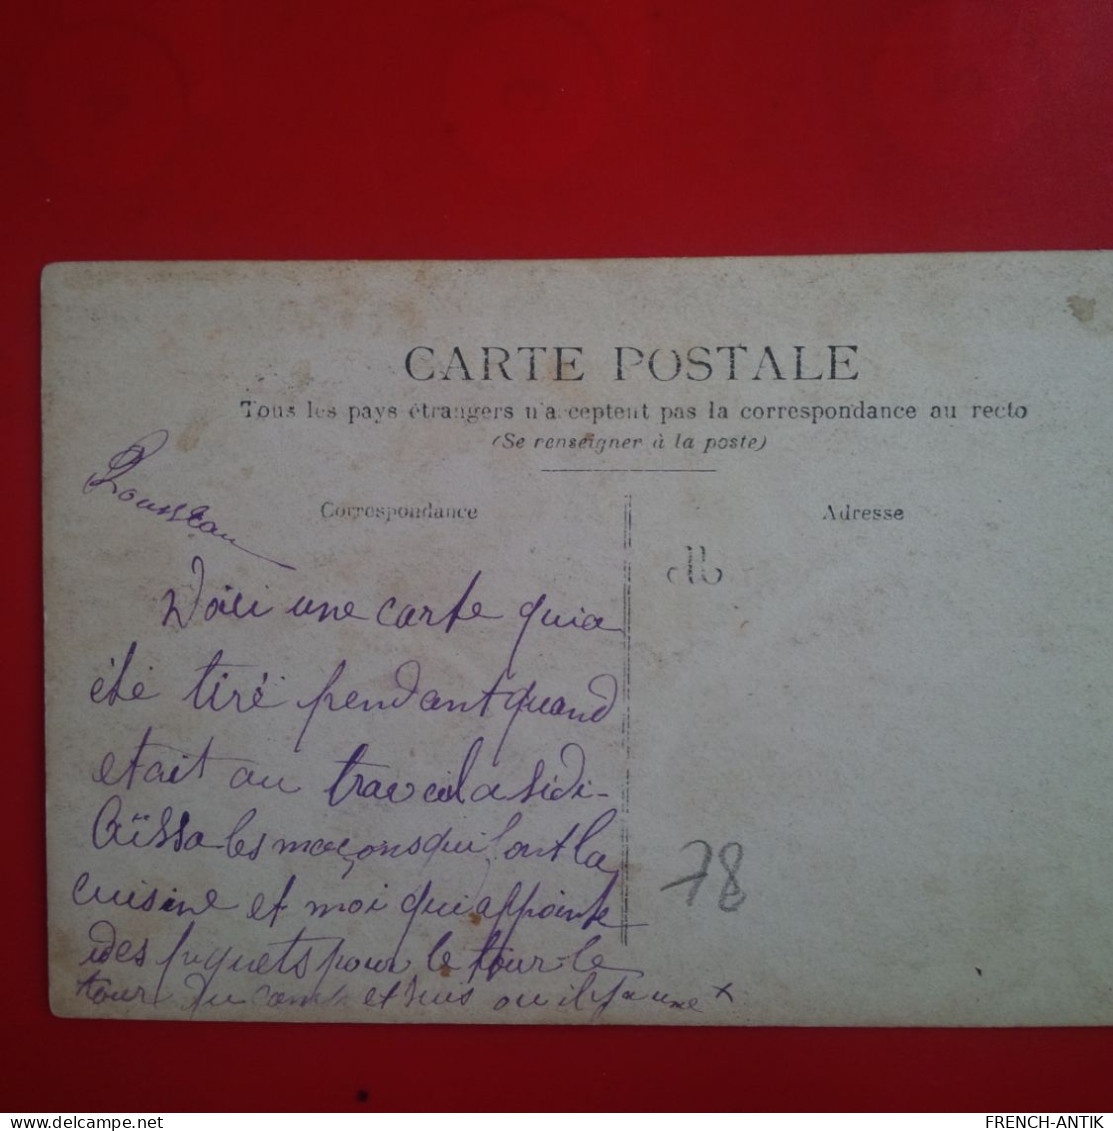 CARTE POSTALE
Tous les pays étrangers n'acceptent pas la correspondance au recto
(Se renseigner à la poste)
Rousseau
Correspondance
Adresse
Voici une carte qui a
été tiré pendant quand
etait au travail a sidi-
Aïssa les maçons qui font la
cuisine et moi qui appointe
des piquets pour le tour le
tour du camp et suis ou il y a une x
78
FRENCH-ANTIK